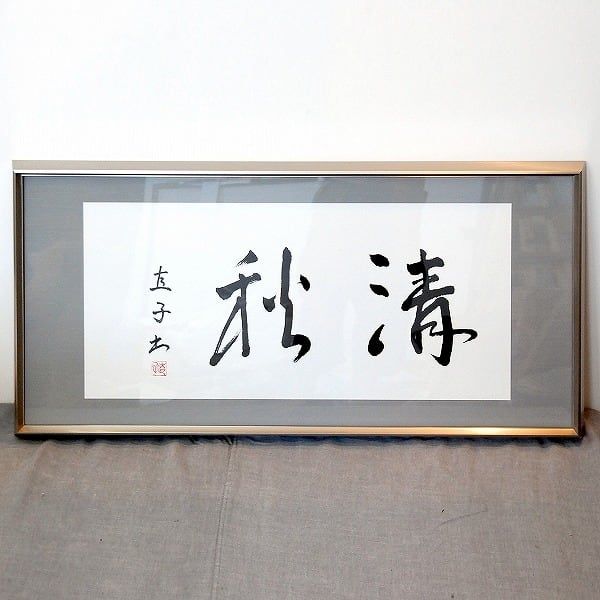 清秋
直子書